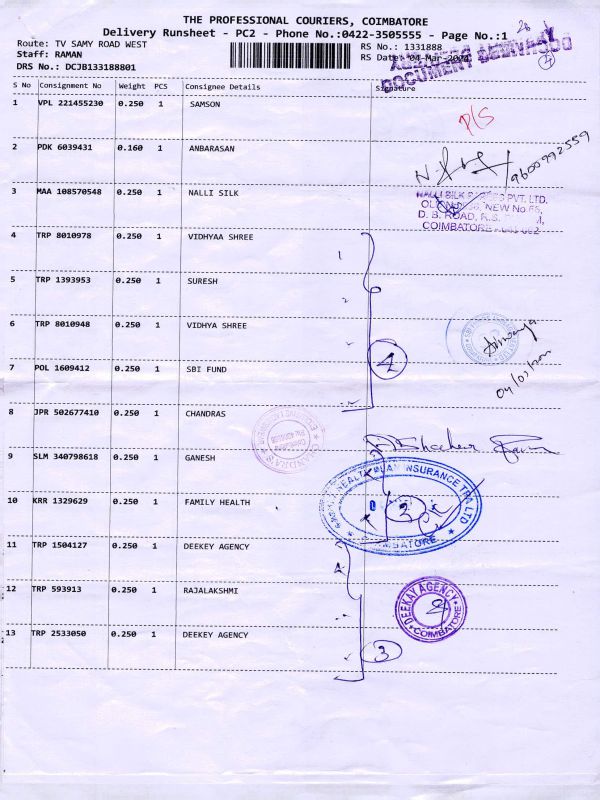 THE PROFESSIONAL COURIERS, COIMBATORE
Delivery Runsheet - PC2 - Phone No.:0422-3505555 - Page No.:1
Route: TV SAMY ROAD WEST
Staff: RAMAN
DRS No.: DCJB133188801
RS No.: 1331888
RS Date: 04-Mar-2024
DOCUMENT
S No Consignment No Weight PCS Consignee Details Signature
1 VPL 221455230 0.250 1 SAMSON
P/S
2 PDK 6039431 0.160 1 ANBARASAN
9600992559
3 MAA 108570548 0.250 1 NALLI SILK
NALLI SILK PVT. LTD.
OLD NEW No.66,
D. B. ROAD, R.S.
COIMBATORE
4 TRP 8010978 0.250 1 VIDHYAA SHREE
1
5 TRP 1393953 0.250 1 SURESH
2
6 TRP 8010948 0.250 1 VIDHYA SHREE
7 POL 1609412 0.250 1 SBI FUND
4
8 JPR 502677410 0.250 1 CHANDRAS
CHANDRA'S
9 SLM 340798618 0.250 1 GANESH
10 KRR 1329629 0.250 1 FAMILY HEALTH
HEALTH PLAN INSURANCE TPA LTD
COIMBATORE
2
11 TRP 1504127 0.250 1 DEEKEY AGENCY
12 TRP 593913 0.250 1 RAJALAKSHMI
DEEKAY AGENCY
COIMBATORE
13 TRP 2533050 0.250 1 DEEKEY AGENCY
3